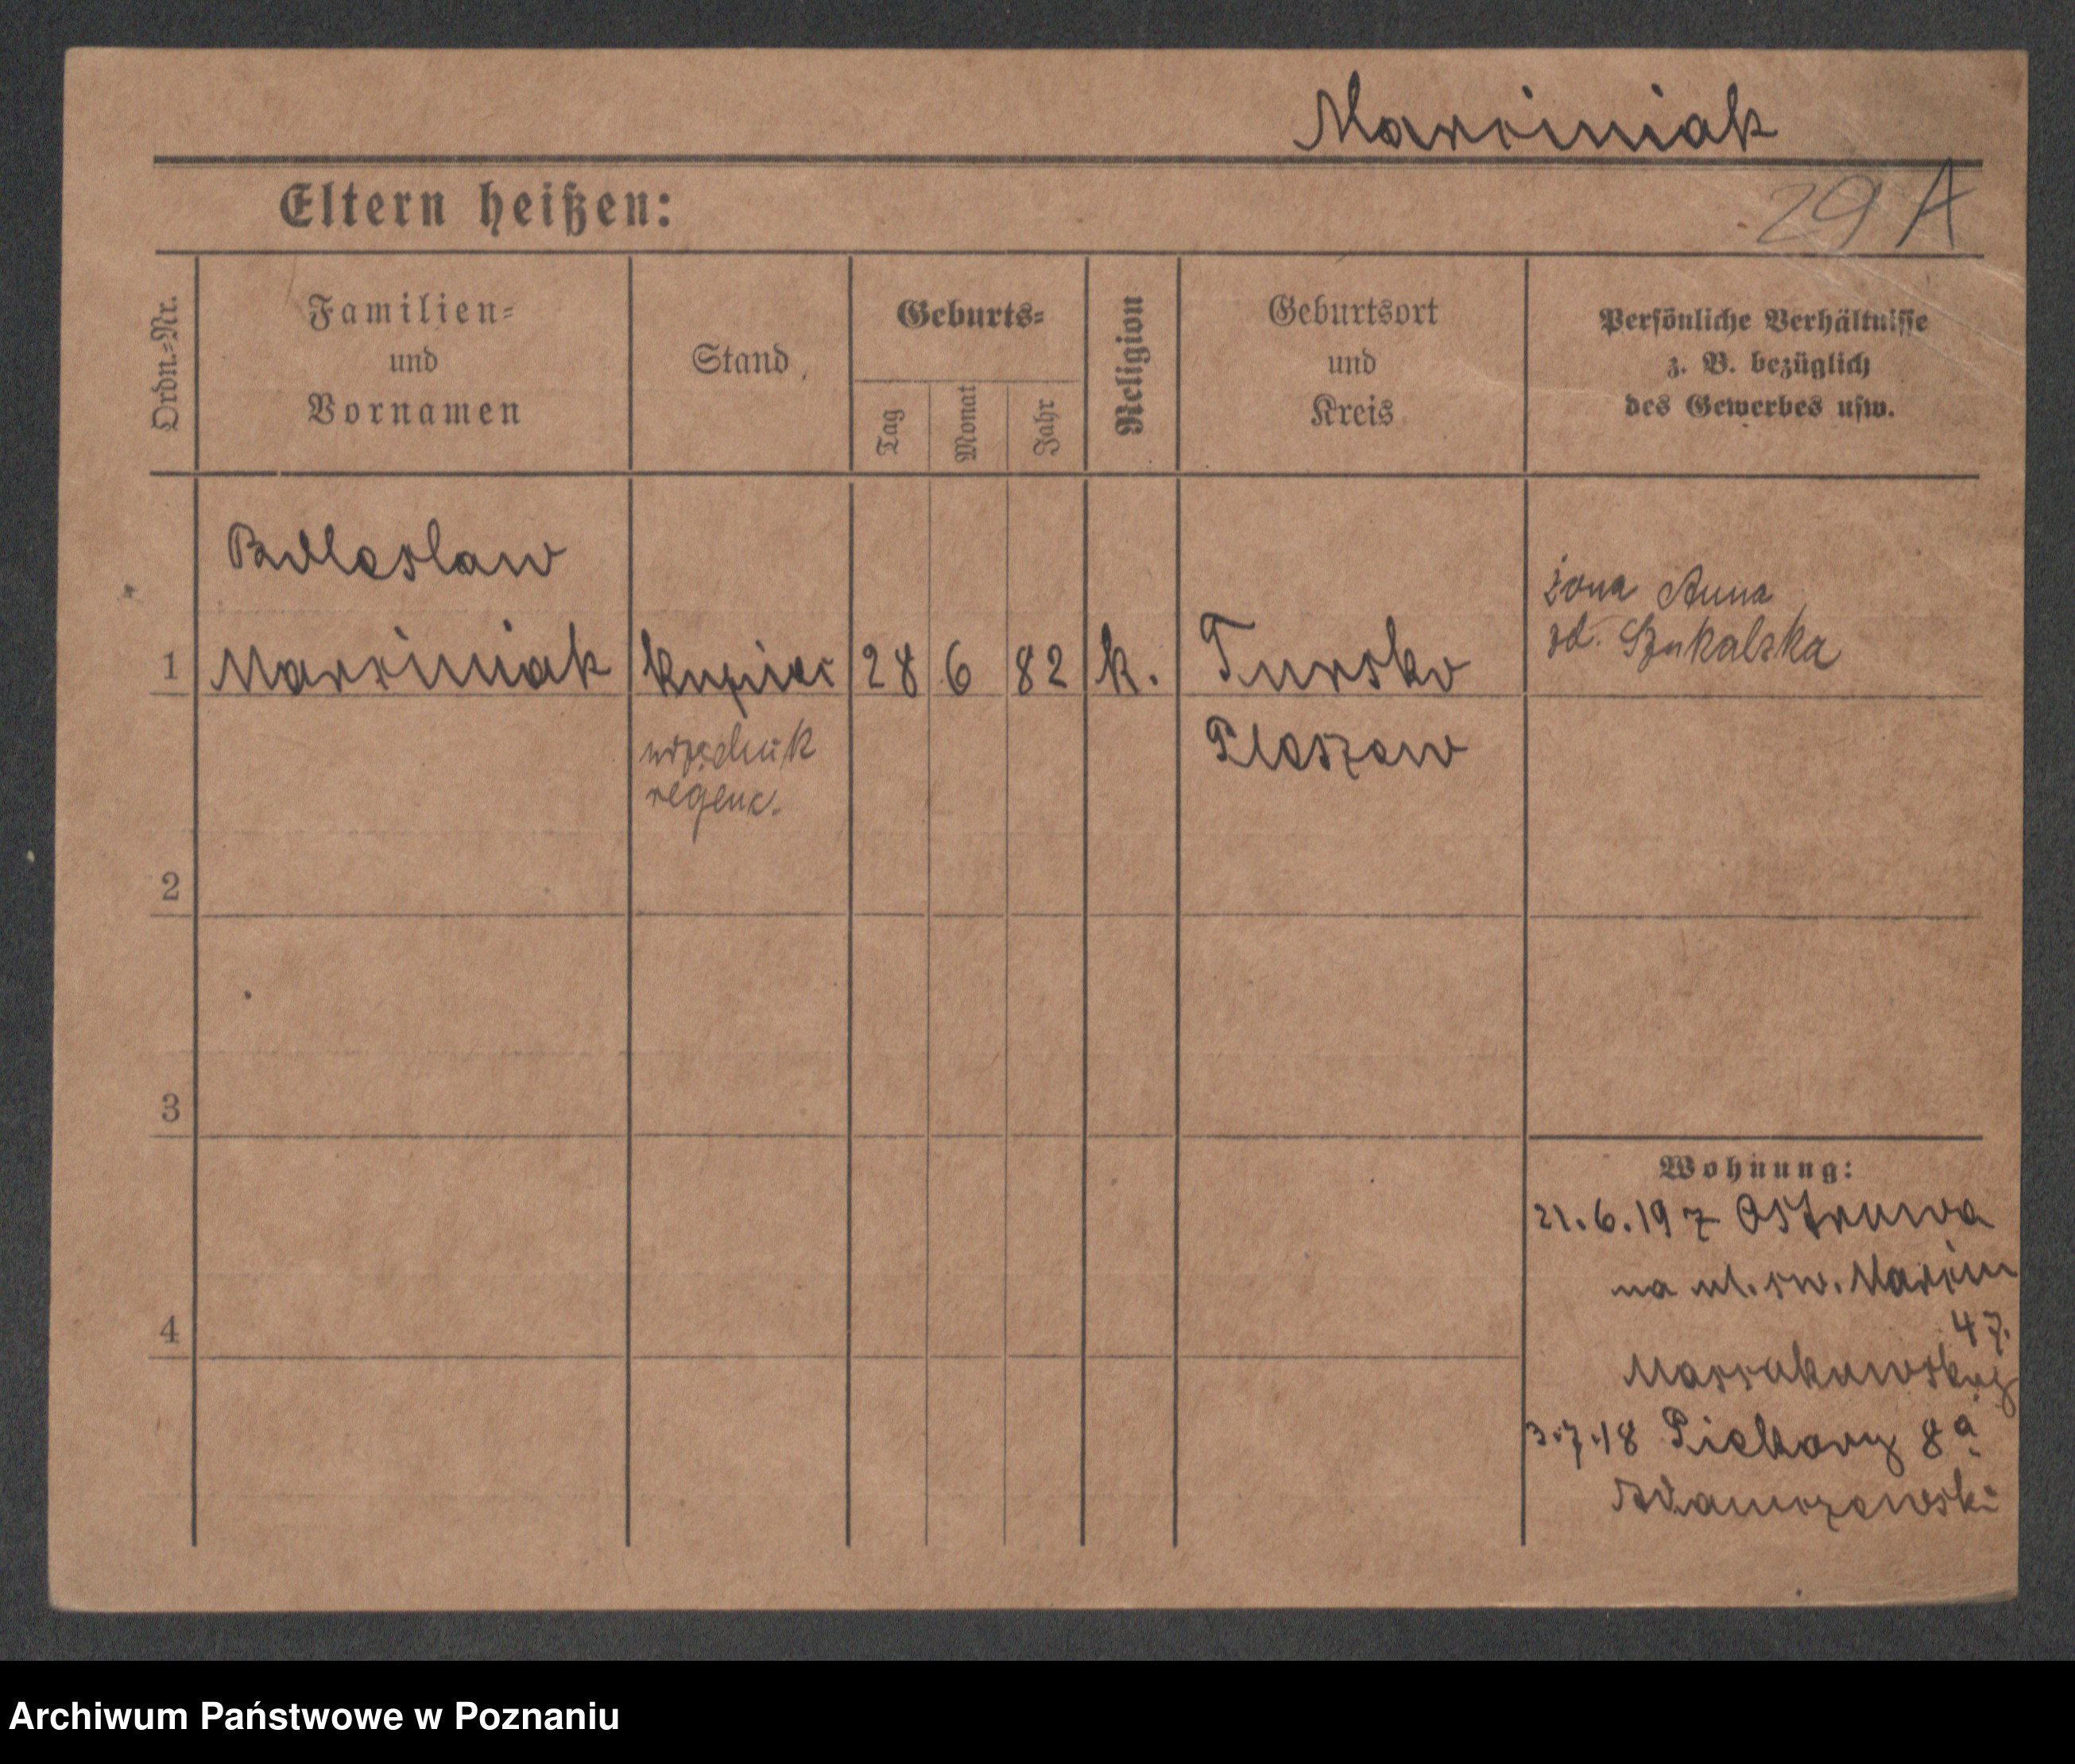 Marciniak
Eltern heißen:
29 A
Ordn.=Nr.
Familien=
und
Vornamen
Stand
Geburts=
Tag
Monat
Jahr
Religion
Geburtsort
und
Kreis
Persönliche Verhältnisse
z. B. bezüglich
des Gewerbes usw.
Boleslaw
1 Marciniak kupiec 28 6 82 k. Tursko
żona Anna
zd. Szukalska
Pleszew
regenc.
2
3
4
Wohnung:
21.6.19 z Ostrowa
na ul. sw. Marcin
47.
3.7.18 Piekary 8a
Adamczewski